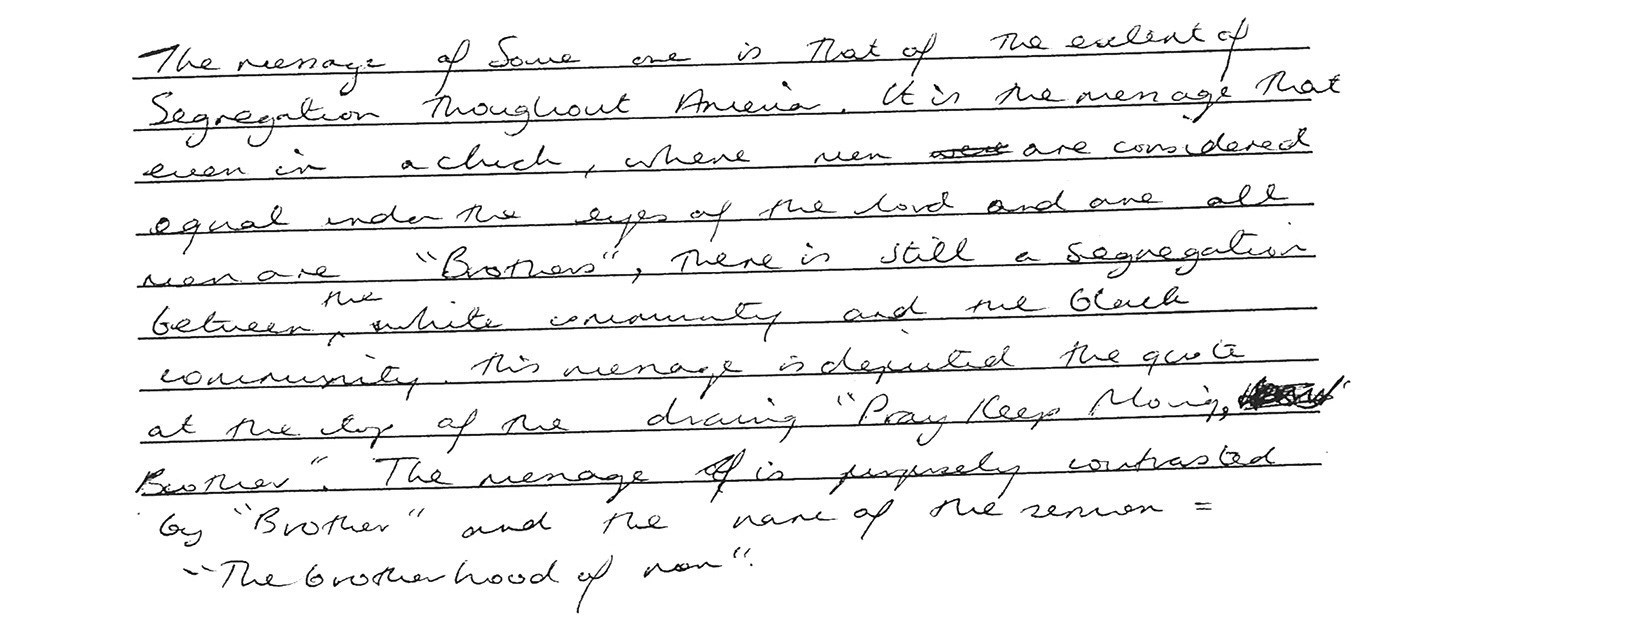 The message of Source one is that of the extent of
Segregation throughout America. It is the message that
even in a chuch, where men ~~were~~ are considered
equal under the eyes of the lord and are all
men are "Brothers", there is still a segregation
between the white community and the black
community. this message is depicted the quote
at the top of the drawing "Pray Keep Moving,
Brother". The message is purposely contrasted
by "Brother" and the name of the sermon =
"The brotherhood of man".